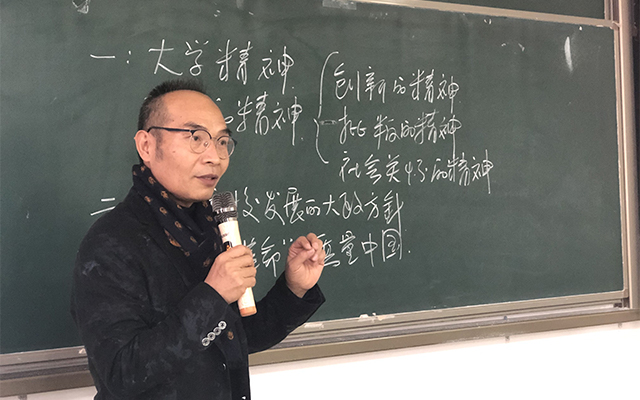 一：大学精神
的精神
创新的精神
批判的精神
社会关怀的精神
二 校发展的大政方針
革命" 质量中国.